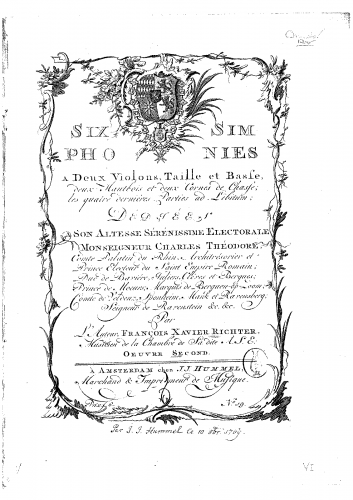 SIX SIM
PHO NIES
A Deux Violons, Taille et Basse,
deux Hautbois et deux Cornes de Chasse;
les quatre dernieres Parties ad Libitum;
DEDIÉES
A SON ALTESSE SÉRÉNISSIME ELECTORALE
MONSEIGNEUR CHARLES THÉODORE,
Comte Palatin du Rhin, Architrésorier et
Prince Electeur du Saint Empire Romain;
Duc de Baviere, Juliers, Cleves et Bergues;
Prince de Moeurs, Marquis de Bergues-op-Zoom;
Comte de Veldenz, Sponheim, Mark et Ravensberg,
Seigneur de Ravenstein &c. &c.
Par
L'Auteur, FRANÇOIS XAVIER RICHTER,
Musicien de la Chambre de Sa dite A.S.E.
OEUVRE SECOND.
à AMSTERDAM chez J.J. HUMMEL,
Marchand & Imprimeur de Musique.
Nº
Par J. J. Hummel ce 12
VI